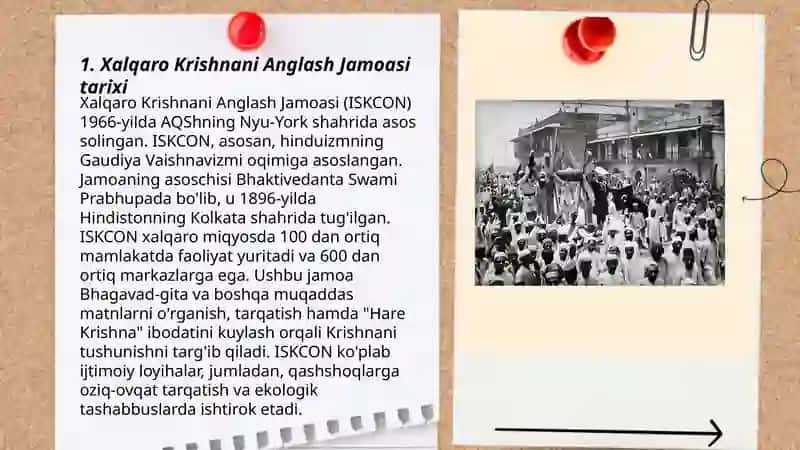 1. Xalqaro Krishnani Anglash Jamoasi
tarixi
Xalqaro Krishnani Anglash Jamoasi (ISKCON)
1966-yilda AQShning Nyu-York shahrida asos
solingan. ISKCON, asosan, hinduizmning
Gaudiya Vaishnavizmi oqimiga asoslangan.
Jamoaning asoschisi Bhaktivedanta Swami
Prabhupada bo'lib, u 1896-yilda
Hindistonning Kolkata shahrida tug'ilgan.
ISKCON xalqaro miqyosda 100 dan ortiq
mamlakatda faoliyat yuritadi va 600 dan
ortiq markazlarga ega. Ushbu jamoa
Bhagavad-gita va boshqa muqaddas
matnlarni o'rganish, tarqatish hamda "Hare
Krishna" ibodatini kuylash orqali Krishnani
tushunishni targ'ib qiladi. ISKCON ko'plab
ijtimoiy loyihalar, jumladan, qashshoqlarga
oziq-ovqat tarqatish va ekologik
tashabbuslarda ishtirok etadi.